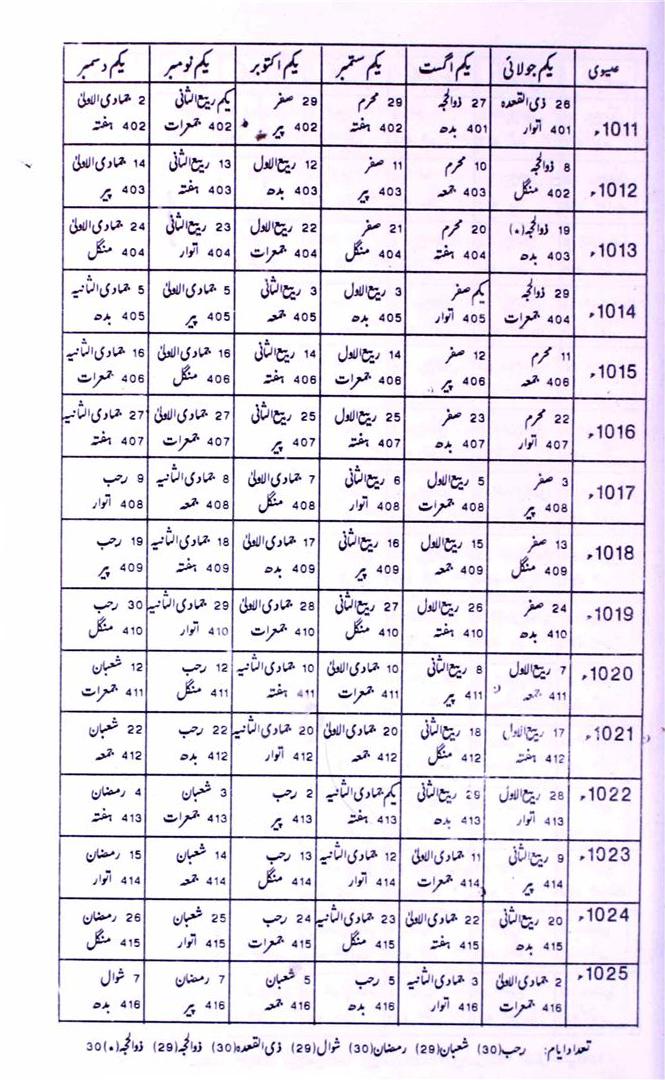 عیسوی یکم جولائی یکم اگست یکم ستمبر یکم اکتوبر یکم نومبر یکم دسمبر
1011ء 26 ذی القعدہ 27 ذوالحجہ 29 محرم 29 صفر یکم ربیع الثانی 2 جمادی الاولیٰ
401 اتوار 401 بدھ 402 ہفتہ 402 پیر 402 جمعرات 402 ہفتہ
1012ء 8 ذوالحجہ 10 محرم 11 صفر 12 ربیع الاول 13 ربیع الثانی 14 جمادی الاولیٰ
402 منگل 403 جمعہ 403 پیر 403 بدھ 403 ہفتہ 403 پیر
1013ء 19 ذوالحجہ(٭) 20 محرم 21 صفر 22 ربیع الاول 23 ربیع الثانی 24 جمادی الاولیٰ
403 بدھ 404 ہفتہ 404 منگل 404 جمعرات 404 اتوار 404 منگل
1014ء 29 ذوالحجہ یکم صفر 3 ربیع الاول 3 ربیع الثانی 5 جمادی الاولیٰ 5 جمادی الثانیہ
404 جمعرات 405 اتوار 405 بدھ 405 جمعہ 405 پیر 405 بدھ
1015ء 11 محرم 12 صفر 14 ربیع الاول 14 ربیع الثانی 16 جمادی الاولیٰ 16 جمادی الثانیہ
406 جمعہ 406 پیر 406 جمعرات 406 ہفتہ 406 منگل 406 جمعرات
1016ء 22 محرم 23 صفر 25 ربیع الاول 25 ربیع الثانی 27 جمادی الاولیٰ 27 جمادی الثانیہ
407 اتوار 407 بدھ 407 ہفتہ 407 پیر 407 جمعرات 407 ہفتہ
1017ء 3 صفر 5 ربیع الاول 6 ربیع الثانی 7 جمادی الاولیٰ 8 جمادی الثانیہ 9 رجب
408 پیر 408 جمعرات 408 اتوار 408 منگل 408 جمعہ 408 اتوار
1018ء 13 صفر 15 ربیع الاول 16 ربیع الثانی 17 جمادی الاولیٰ 18 جمادی الثانیہ 19 رجب
409 منگل 409 جمعہ 409 پیر 409 بدھ 409 ہفتہ 409 پیر
1019ء 24 صفر 26 ربیع الاول 27 ربیع الثانی 28 جمادی الاولیٰ 29 جمادی الثانیہ 30 رجب
410 بدھ 410 ہفتہ 410 منگل 410 جمعرات 410 اتوار 410 منگل
1020ء 7 ربیع الاول 8 ربیع الثانی 10 جمادی الاولیٰ 10 جمادی الثانیہ 12 رجب 12 شعبان
411 جمعہ 411 پیر 411 جمعرات 411 ہفتہ 411 منگل 411 جمعرات
1021ء 17 ربیع الاول 18 ربیع الثانی 20 جمادی الاولیٰ 20 جمادی الثانیہ 22 رجب 22 شعبان
412 ہفتہ 412 منگل 412 جمعہ 412 اتوار 412 بدھ 412 جمعہ
1022ء 28 ربیع الاول 29 ربیع الثانی یکم جمادی الثانیہ 2 رجب 3 شعبان 4 رمضان
413 اتوار 413 بدھ 413 ہفتہ 413 پیر 413 جمعرات 413 ہفتہ
1023ء 9 ربیع الثانی 11 جمادی الاولیٰ 12 جمادی الثانیہ 13 رجب 14 شعبان 15 رمضان
414 پیر 414 جمعرات 414 اتوار 414 منگل 414 جمعہ 414 اتوار
1024ء 20 ربیع الثانی 22 جمادی الاولیٰ 23 جمادی الثانیہ 24 رجب 25 شعبان 26 رمضان
415 بدھ 415 ہفتہ 415 منگل 415 جمعرات 415 اتوار 415 منگل
1025ء 2 جمادی الاولیٰ 3 جمادی الثانیہ 5 رجب 5 شعبان 7 رمضان 7 شوال
416 جمعرات 416 اتوار 416 بدھ 416 جمعہ 416 پیر 416 بدھ
تعداد ایام: رجب(30) شعبان(29) رمضان(30) شوال(29) ذی القعدہ(30) ذوالحجہ(29) ذوالحجہ(٭)30